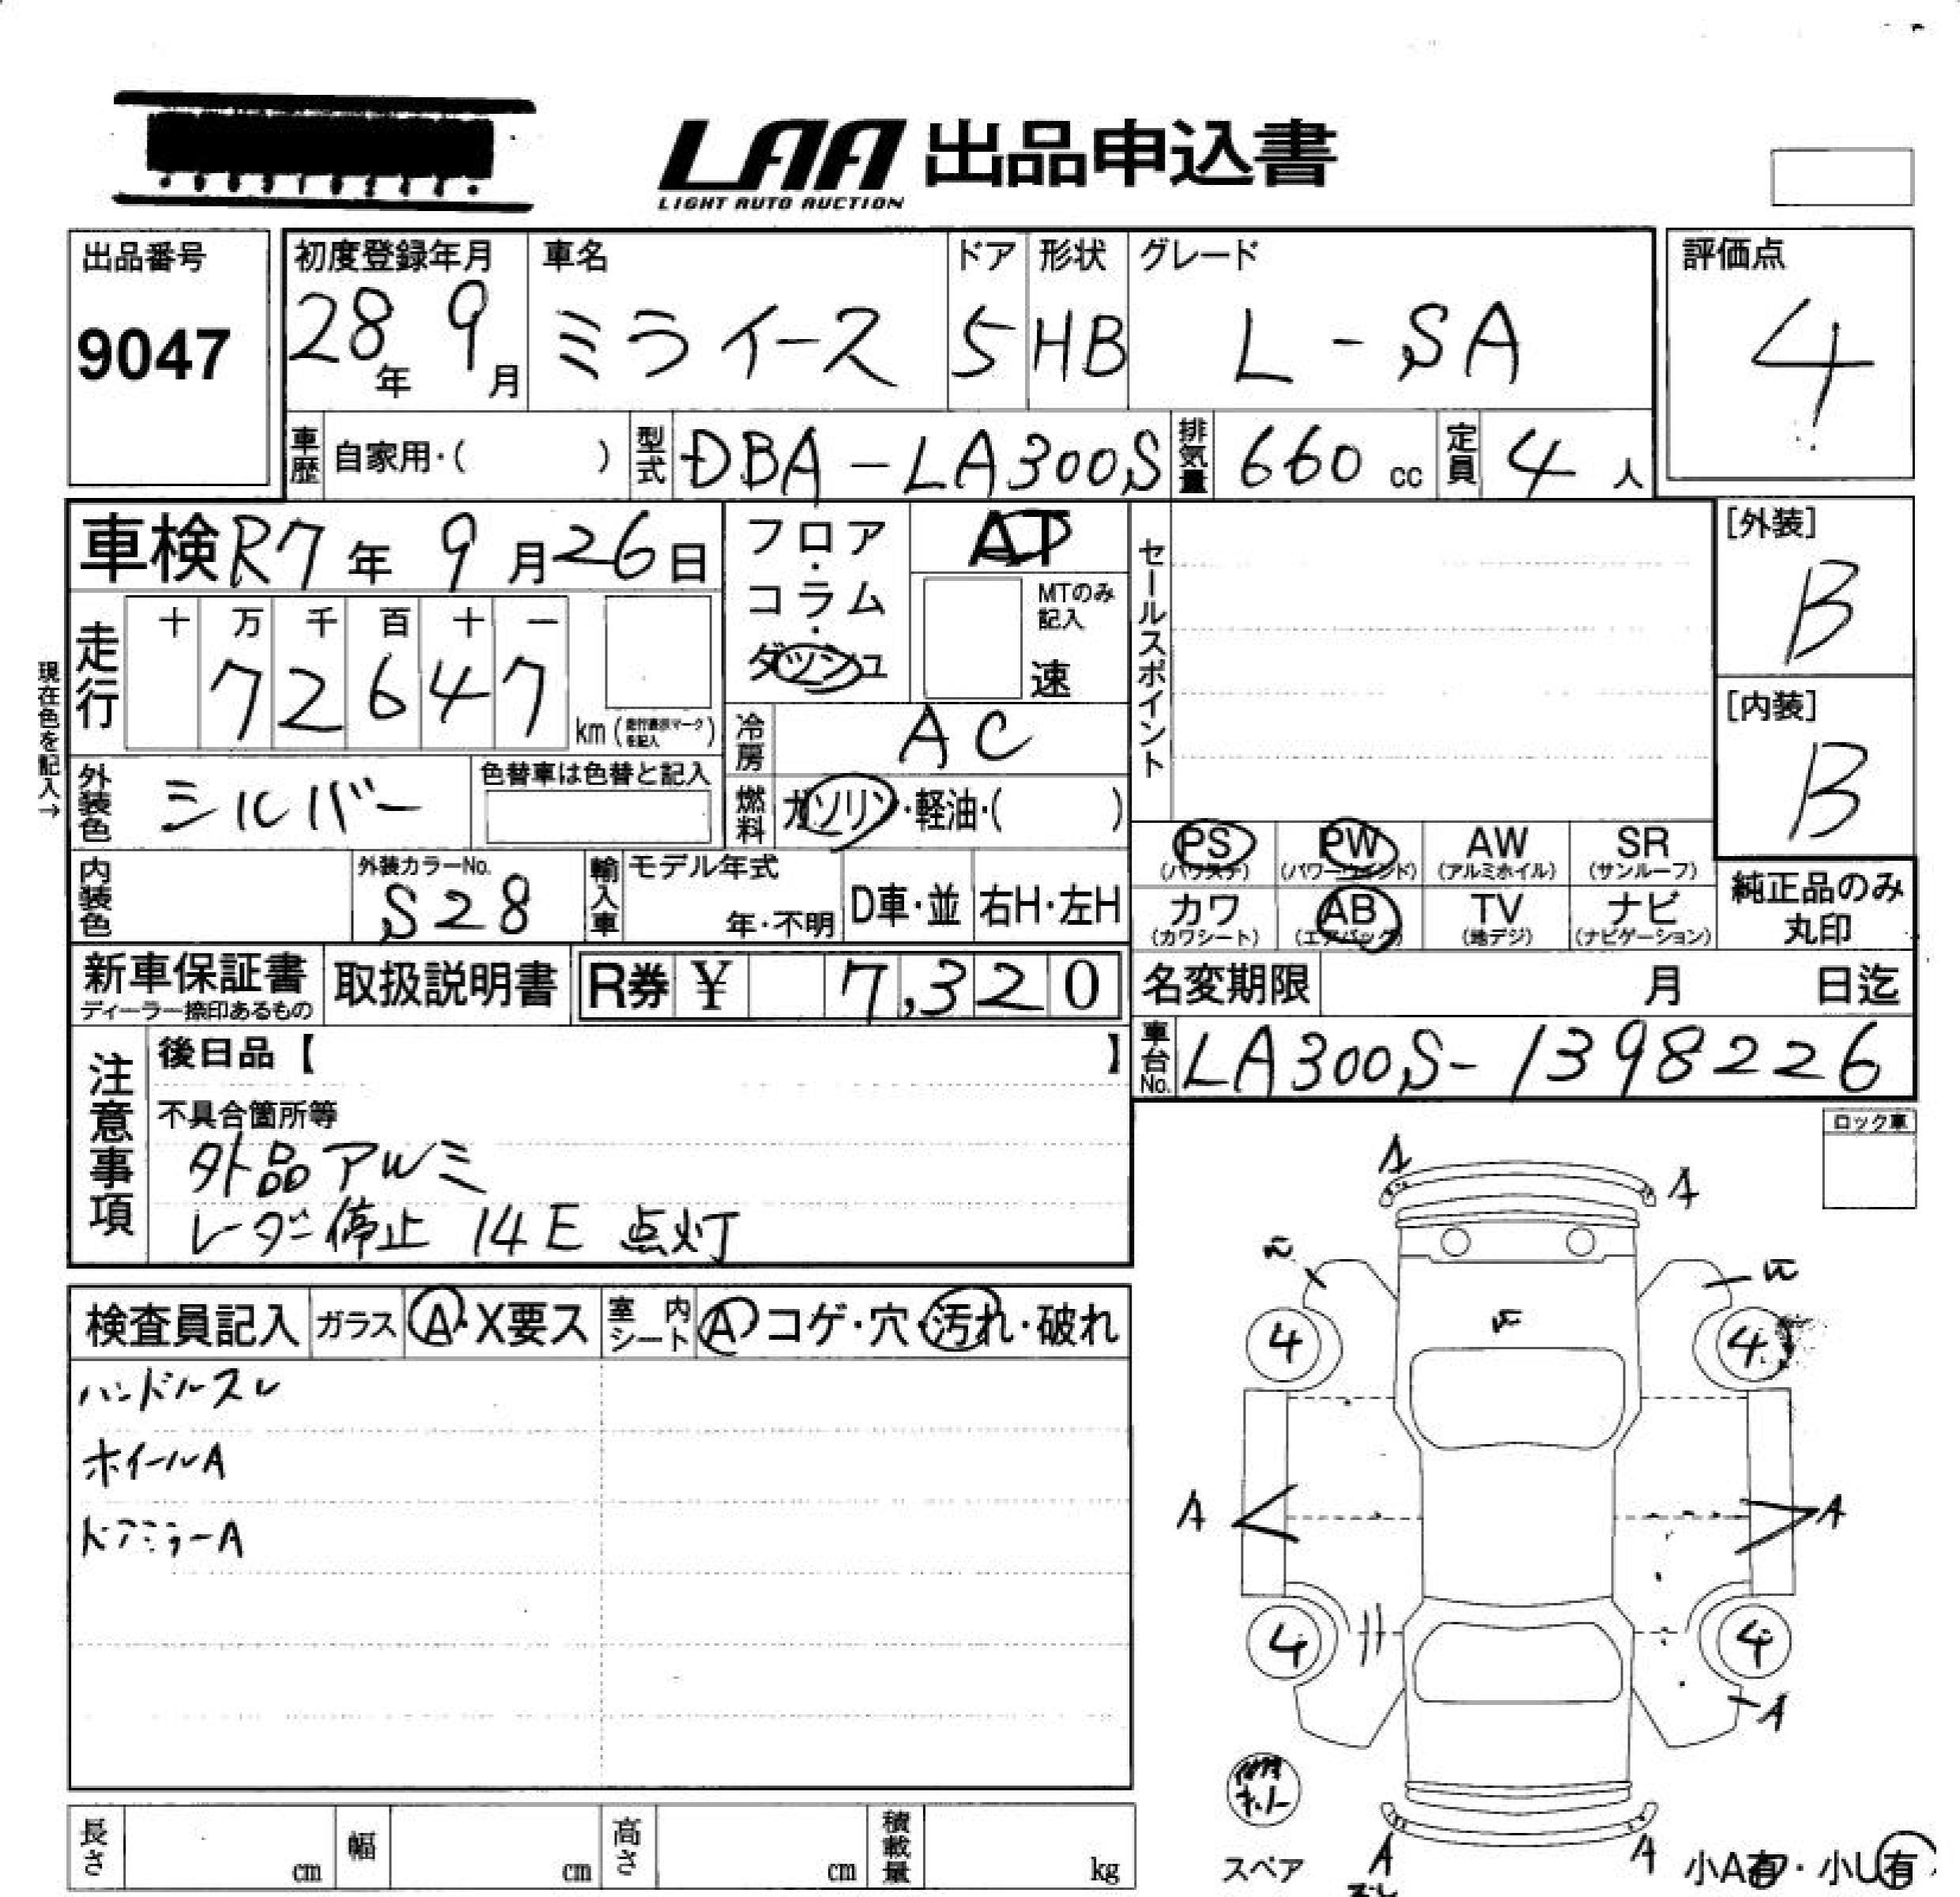 LAA 出品申込書
LIGHT AUTO AUCTION
出品番号
9047
初度登録年月
28年 9月
車名
ミライース
ドア
5
形状
HB
グレード
L-SA
評価点
4
車歴 自家用・( )
型式 DBA-LA300S
排気量 660 cc
定員 4 人
車検 R7年 9月 26日
フロア・コラム・ダッシュ
AT
MTのみ記入
速
セールスポイント
[外装]
B
[内装]
B
現在色を記入→
走行
十 万 千 百 十 一
7 2 6 4 7
km (走行表示マークを記入)
冷房 AC
外装色 シルバー
色替車は色替と記入
燃料 ガソリン・軽油・( )
内装色
外装カラーNo.
S28
輸入車
モデル年式
年・不明
D車・並
右H・左H
PS (パワステ)
PW (パワーウインド)
AW (アルミホイル)
SR (サンルーフ)
カワ (カワシート)
AB (エアバック)
TV (地デジ)
ナビ (ナビゲーション)
純正品のみ
丸印
新車保証書
ディーラー捺印あるもの
取扱説明書
R券 ¥ 7,320
名変期限 月 日迄
車台No. LA300S-1398226
注意事項
後日品【 】
不具合箇所等
外品アルミ
レーダー停止 14E 点灯
ロック車
検査員記入
ガラス A・X要ス
室内シート A・コゲ・穴・汚れ・破れ
ハンドルスレ
ホイールA
ドアミラーA
A
A
4
4
A
A
4
4
A
スペア
A
A
小A有・小U有
長さ cm
幅 cm
高さ cm
積載量 kg